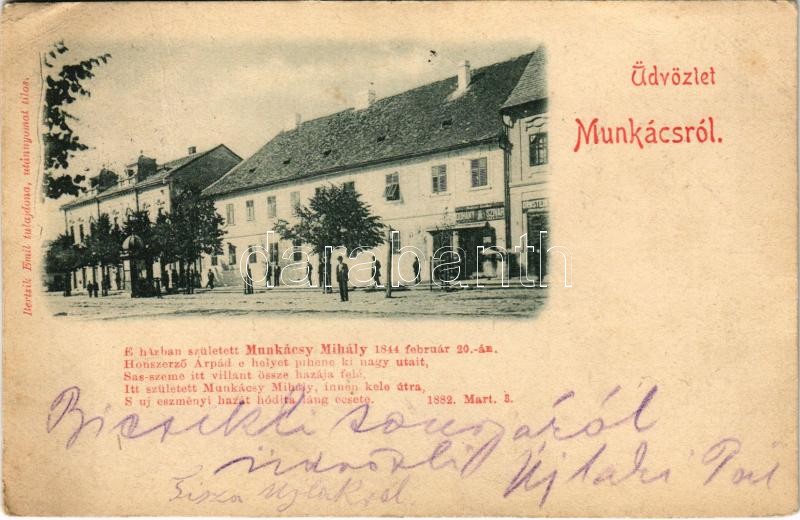 Üdvözlet
Munkácsról.
Bertsik Emil tulajdona, utánnyomat tilos.
DOHÁNY
darabanth
E házban született Munkácsy Mihály 1844 február 20.-án.
Honszerző Árpád e helyet pihene ki nagy utait,
Sas-szeme itt villant össze hazája felé,
Itt született Munkácsy Mihály, innen kele útra,
S uj eszményi hazát hódita láng ecsete. 1882. Mart. 3.
Bicsikli
Tisza Ujlakról.